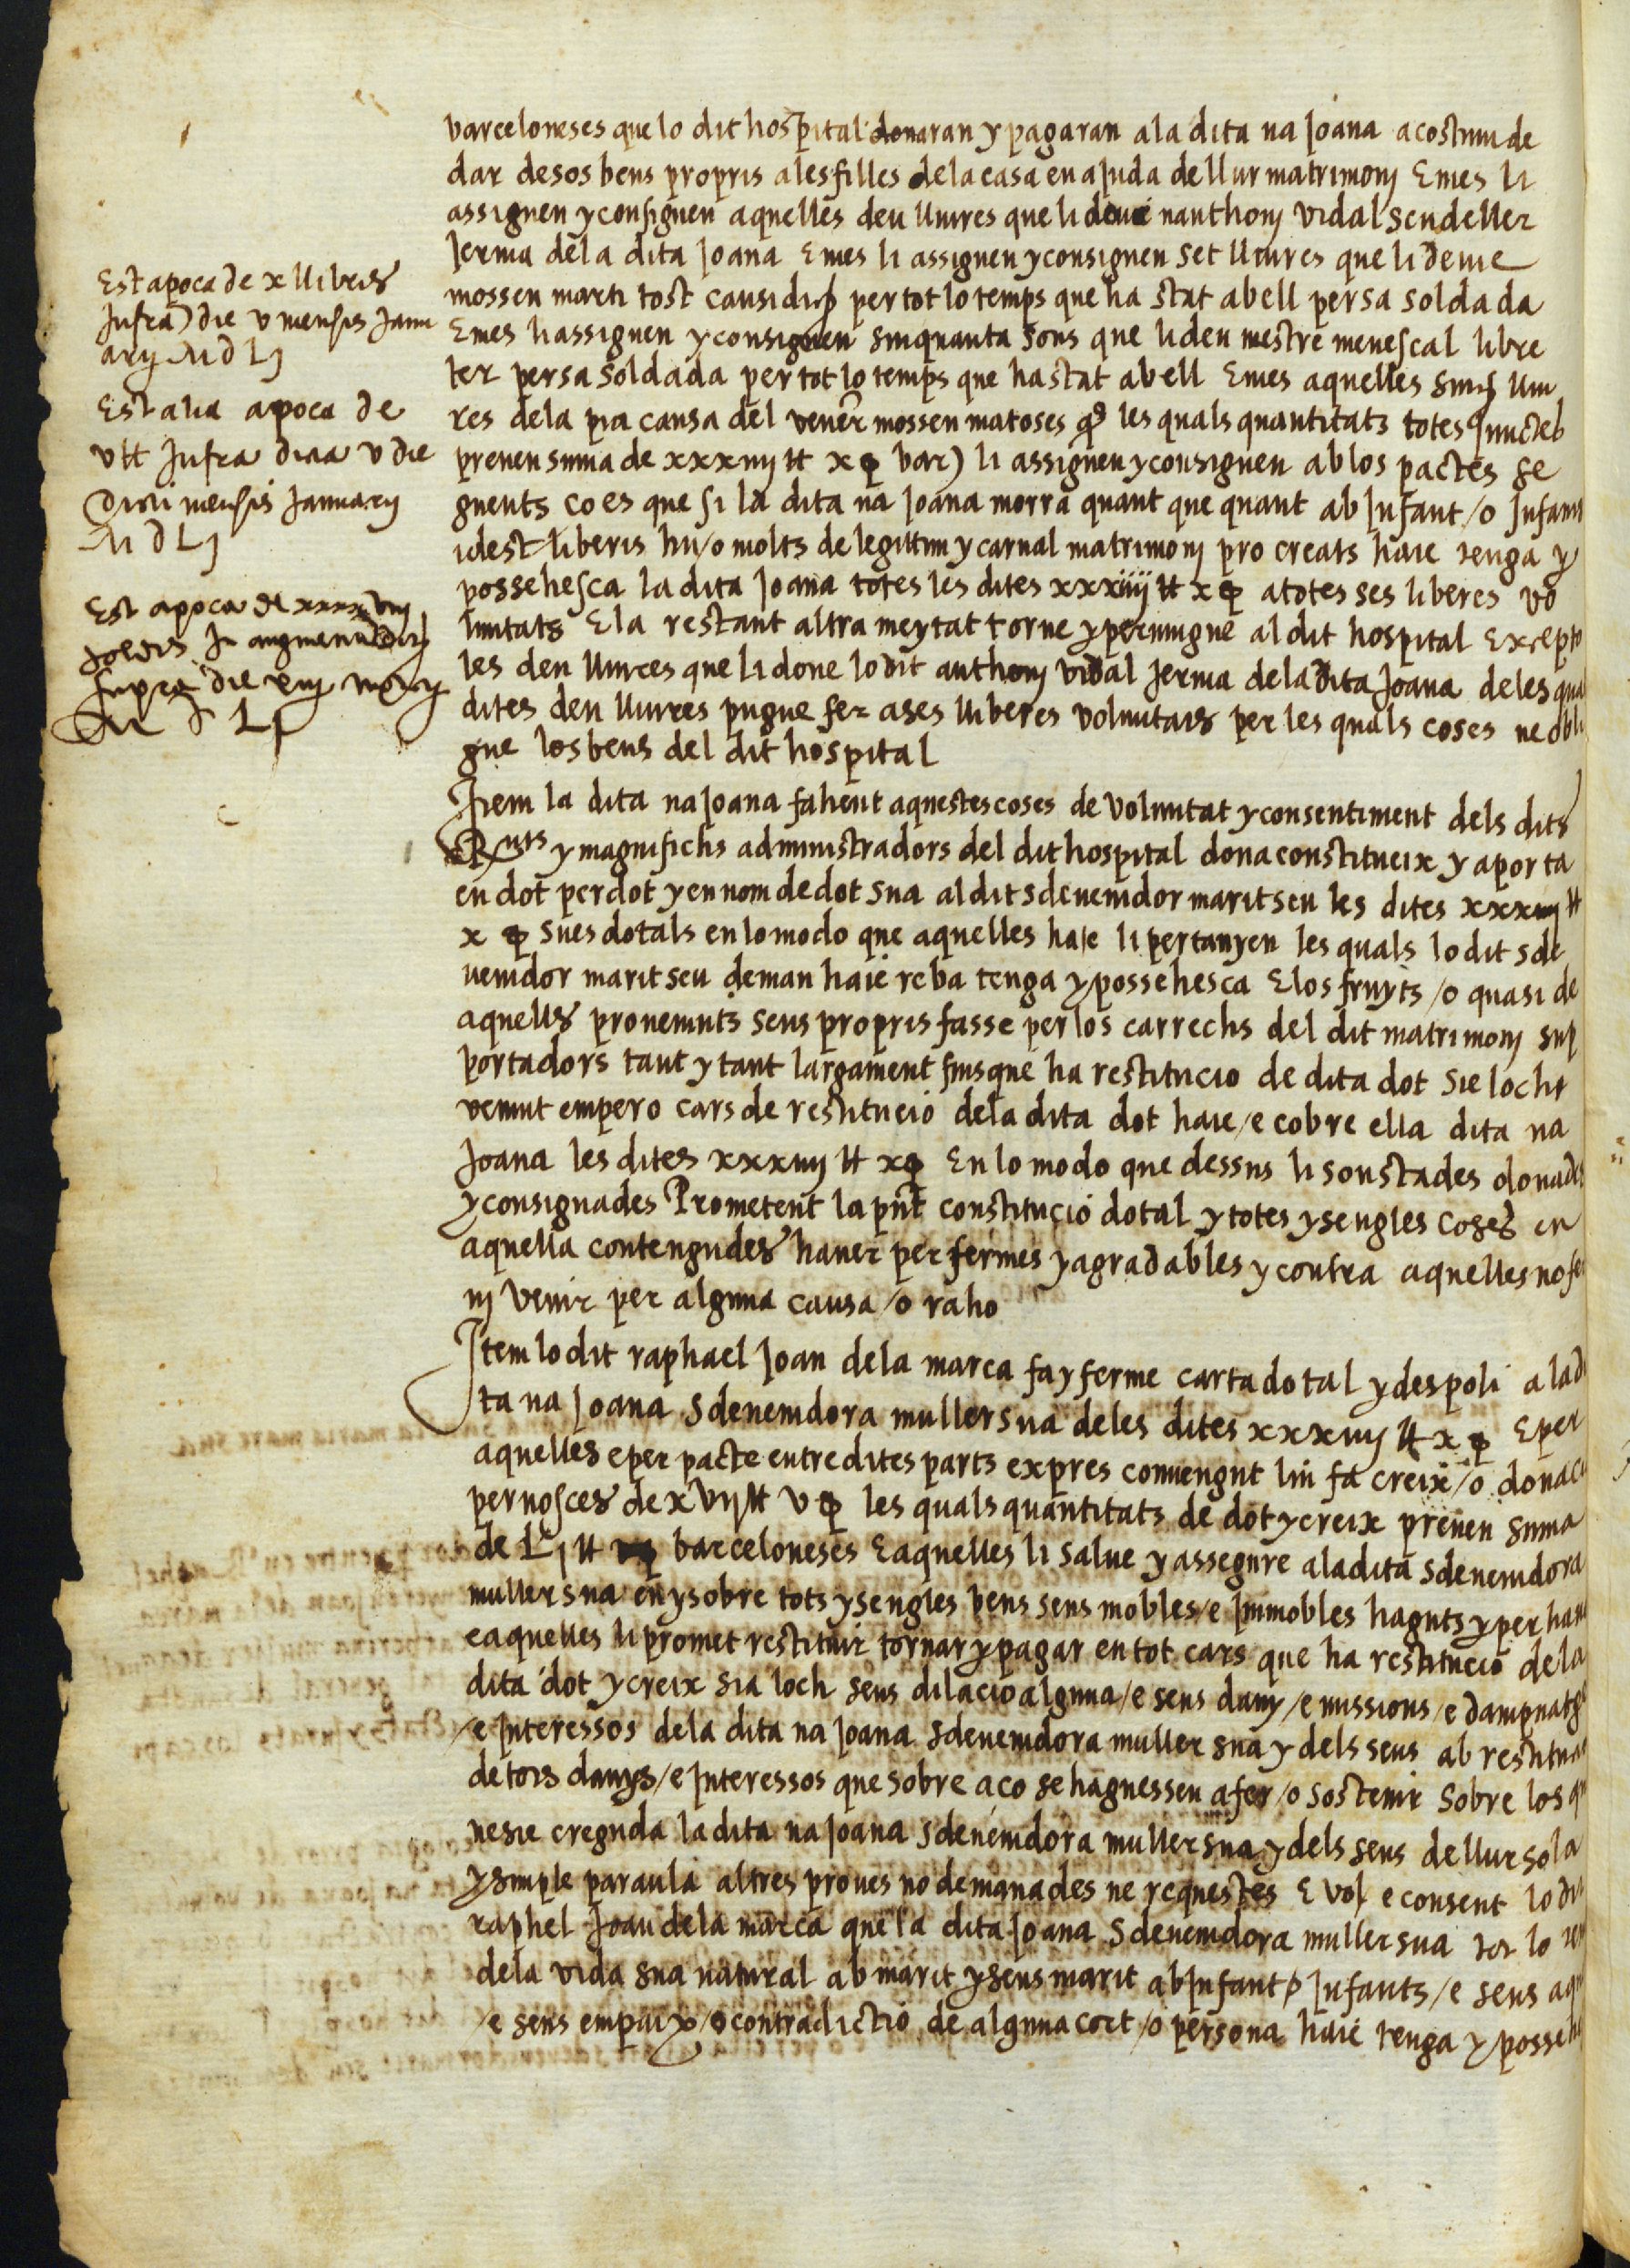 barceloneses que lo dit hospital donaran y pagaran a la dita na Joana acostum de
dar de sos bens propris a les filles de la casa en ajuda de llur matrimonj E mes li
assignen y consignen aquelles deu lliures que li deue nanthonj vidal sendeller
Jerma de la dita Joana E mes li assignen y consignen set lliures que li deue
mossen marti tost causidich per tot lo temps que ha stat ab ell per sa soldada
E mes li assignen y consignen sinquanta sous que li deu mestre menescal libre
ter per sa soldada per tot lo temps que ha stat ab ell E mes aquelles sinch lliu
res de la pia causa del vener mossen matoses les quals quantitats totes junctes
prenen suma de xxxiiij ll x ss bar) li assignen y consignen ab los pactes se
guents co es que si la dita na Joana morra quant que quant ab Jnfant /o Jnfants
idest liberis hu /o molts de legittim y carnal matrimonj procreats haie tenga y
possehesca la dita Joana totes les dites xxxiiij ll x ss a totes ses liberes vo
luntats E la restant altra meytat torne y peruingue al dit hospital Excepto
les deu lliures que li done lo dit anthonj vidal Jerma de la dita Joana de les quals
dites deu lliures pugue fer a ses lliberes voluntats per les quals coses ne obli
gue los bens del dit hospital
Item la dita na Joana fahent aquestes coses de voluntat y consentiment dels dits
Rnts y magnifichs administradors del dit hospital dona constitueix y aporta
en dot per dot y en nom de dot sua al dit sdeuenidor marit seu les dites xxxiiij ll
x ss sues dotals en lo modo que aquelles haie li pertanyen les quals lo dit sde
uenidor marit seu deman haie reba tenga y possehesca E los fruyts /o quasi de
aquells prouenints seus propris fasse per los carrechs del dit matrimonj sup
portadors tant y tant largament finsque ha restitucio de dita dot sie loch e
vemint empero cars de restitucio de la dita dot haie /e cobre ella dita na
Joana les dites xxxiiij ll x ss En lo modo que dessus li son stades donades
y consignades Prometent la pnt constitucio dotal y totes y sengles coses en
aquella contengudes hauer per fermes y agradables y contra aquelles no fer
nj venir per alguna causa /o raho
Item lo dit raphael Joan de la marca fa y ferme carta dotal y despoli a la di
ta na Joana sdeuenidora muller sua de les dites xxxiiij ll x ss E per
aquelles e per pacte entre dites parts expres conuengut lin fa creix /o donacio
per nosces de xvij ll v ss les quals quantitats de dot y creix prenen suma
de Lj ll barceloneses E aquelles li salue y assegure a la dita sdeuenidora
muller sua en y sobre tots y sengles bens seus mobles /e Jmmobles haguts y per hauer
e aquelles li promet restituir tornar y pagar en tot cars que ha restitucio de la
dita dot y creix sia loch sens dilacio alguna /e sens dany /e missions /e dampnatges
/e Jnteressos de la dita na Joana sdeuenidora muller sua y dels seus ab restitucio
de tots danys /e Jnteressos que sobre aco se haguessen a fer /o sostenir sobre los quals
ne sie creguda la dita na Joana sdeuenidora muller sua y dels seus de llur sola
y simple paraula altres proues no demanades ne requestes E vol e consent lo dit
raphel Joan de la marca que la dita Joana sdeuenidora muller sua tot lo temps
de la vida sua natural ab marit y sens marit ab Jnfant /o Jnfants /e sens aquells
/e sens empaig /o contradictio de alguna cort /o persona haie tenga y possehesca
Est apoca de x lliures
Jnfra) die v mensis Janu
arij M D Lj
Est alia apoca de
v ll Jnfra dicta v die
dicti mensis Januarij
M D Lj
Est apoca de
solidis Jn augmentu
supra die
M D Lj